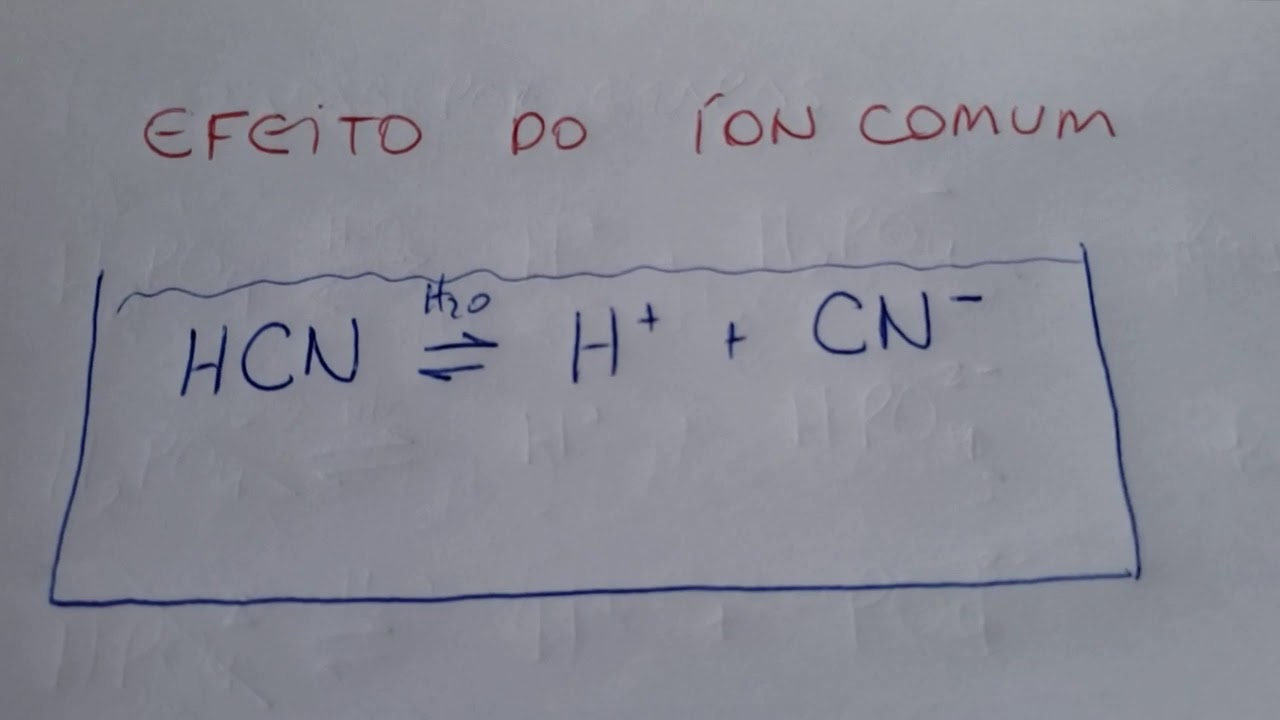 EFEITO DO ÍON COMUM
H2O
HCN ⇌ H⁺ + CN⁻